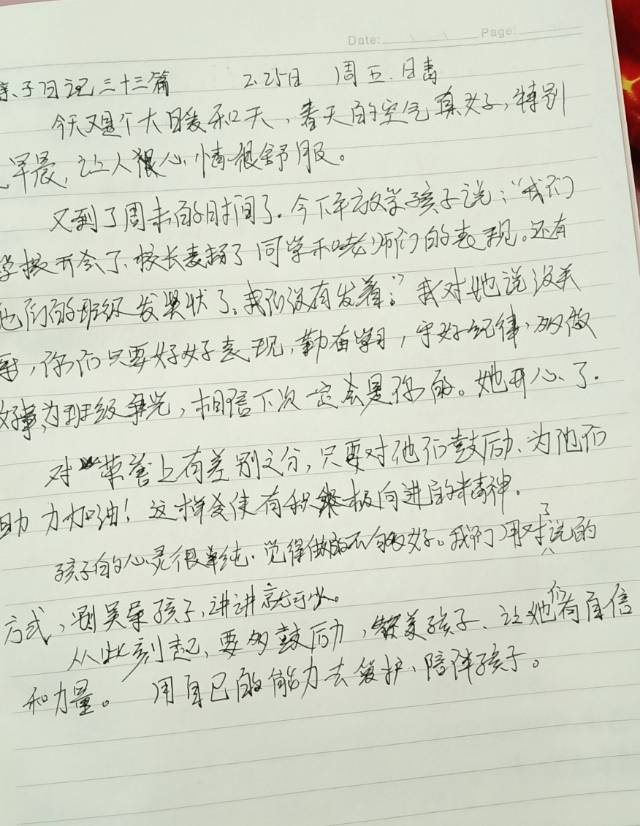 Date: Page:
亲子日记三十三篇 2.25日 周五.日志
今天又是个大日暖和天，春天的空气真好，特别
早晨，让人狠心情很舒服。
又到了周末的时间了.今下午放学孩子说："我们
学校开会了.校长表扬了同学和老师们的表现。还有
他们的班级发奖状了，我们没有发着。"我对她说没关
系，你们只要好好表现，勤奋学习，守好纪律，多做
好事，为班级争光，相信下次一定会是你的。她开心了.
对荣誉上有差别之分，只要对他们鼓励、为他们
助力加油！这样会使有积极向进的精神.
孩子的心灵很单纯.觉得做的不够好。我们用对了说的
方式，别吴孩子，讲讲就可以。
从此刻起，要多鼓励，赞美孩子、让她们有自信
和力量。 用自己的能力去维护、陪伴孩子。